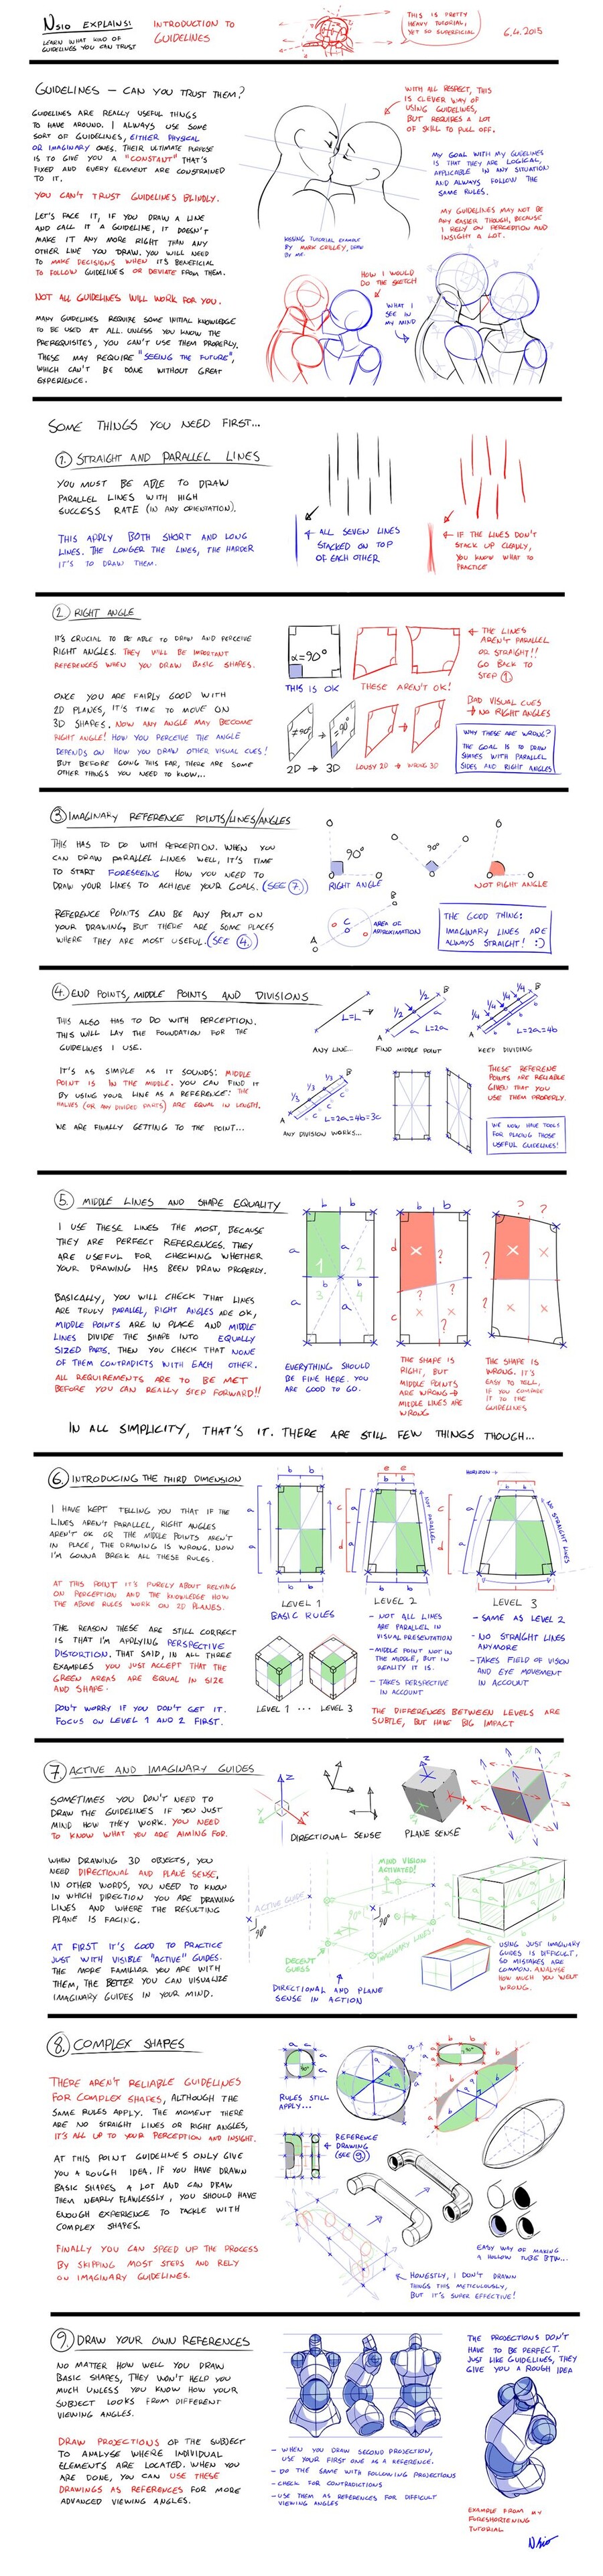 Nsio EXPLAINS!
LEARN WHAT KIND OF
GUIDELINES YOU CAN TRUST
INTRODUCTION TO
GUIDELINES
THIS IS PRETTY
HEAVY TUTORIAL,
YET SO SUPERFICIAL
6.4.2015
GUIDELINES – CAN YOU TRUST THEM?
GUIDELINES ARE REALLY USEFUL THINGS
TO HAVE AROUND. I ALWAYS USE SOME
SORT OF GUIDELINES, EITHER PHYSICAL
OR IMAGINARY ONES. THEIR ULTIMATE PURPOSE
IS TO GIVE YOU A "CONSTANT" THAT'S
FIXED AND EVERY ELEMENT ARE CONSTRAINED
TO IT.
YOU CAN'T TRUST GUIDELINES BLINDLY.
LET'S FACE IT, IF YOU DRAW A LINE
AND CALL IT A GUIDELINE, IT DOESN'T
MAKE IT ANY MORE RIGHT THAN ANY
OTHER LINE YOU DRAW. YOU WILL NEED
TO MAKE DECISIONS WHEN IT'S BENEFICIAL
TO FOLLOW GUIDELINES OR DEVIATE FROM THEM.
NOT ALL GUIDELINES WILL WORK FOR YOU.
MANY GUIDELINES REQUIRE SOME INITIAL KNOWLEDGE
TO BE USED AT ALL. UNLESS YOU KNOW THE
PREREQUISITES, YOU CAN'T USE THEM PROPERLY.
THESE MAY REQUIRE "SEEING THE FUTURE",
WHICH CAN'T BE DONE WITHOUT GREAT
EXPERIENCE.
WITH ALL RESPECT, THIS
IS CLEVER WAY OF
USING GUIDELINES,
BUT REQUIRES A LOT
OF SKILL TO PULL OFF.
MY GOAL WITH MY GUIDELINES
IS THAT THEY ARE LOGICAL,
APPLICABLE IN ANY SITUATION
AND ALWAYS FOLLOW THE
SAME RULES.
MY GUIDELINES MAY NOT BE
ANY EASIER THOUGH, BECAUSE
I RELY ON PERCEPTION AND
INSIGHT A LOT.
KISSING TUTORIAL EXAMPLE
BY MARK CRILLEY, DRAWN
BY ME.
HOW I WOULD
DO THE SKETCH
WHAT I
SEE IN
MY MIND
SOME THINGS YOU NEED FIRST...
1. STRAIGHT AND PARALLEL LINES
YOU MUST BE ABLE TO DRAW
PARALLEL LINES WITH HIGH
SUCCESS RATE (IN ANY ORIENTATION).
THIS APPLY BOTH SHORT AND LONG
LINES. THE LONGER THE LINES, THE HARDER
IT'S TO DRAW THEM.
ALL SEVEN LINES
STACKED ON TOP
OF EACH OTHER
IF THE LINES DON'T
STACK UP CLEANLY,
YOU KNOW WHAT TO
PRACTICE
2. RIGHT ANGLE
IT'S CRUCIAL TO BE ABLE TO DRAW AND PERCEIVE
RIGHT ANGLES. THEY WILL BE IMPORTANT
REFERENCES WHEN YOU DRAW BASIC SHAPES.
ONCE YOU ARE FAIRLY GOOD WITH
2D PLANES, IT'S TIME TO MOVE ON
3D SHAPES. NOW ANY ANGLE MAY BECOME
RIGHT ANGLE! HOW YOU PERCEIVE THE ANGLE
DEPENDS ON HOW YOU DRAW OTHER VISUAL CUES!
BUT BEFORE GOING THIS FAR, THERE ARE SOME
OTHER THINGS YOU NEED TO KNOW...
α=90°
THIS IS OK
THESE AREN'T OK!
THE LINES
AREN'T PARALLEL
OR STRAIGHT!!
GO BACK TO
STEP 1
≠90°
=90°
2D → 3D
LOUSY 2D → WRONG 3D
BAD VISUAL CUES
→ NO RIGHT ANGLES
WHY THESE ARE WRONG?
THE GOAL IS TO DRAW
SHAPES WITH PARALLEL
SIDES AND RIGHT ANGLES
3 IMAGINARY REFERENCE POINTS/LINES/ANGLES
THIS HAS TO DO WITH PERCEPTION. WHEN YOU
CAN DRAW PARALLEL LINES WELL, IT'S TIME
TO START FORESEEING HOW YOU NEED TO
DRAW YOUR LINES TO ACHIEVE YOUR GOALS. (SEE 7.)
REFERENCE POINTS CAN BE ANY POINT ON
YOUR DRAWING, BUT THERE ARE SOME PLACES
WHERE THEY ARE MOST USEFUL. (SEE 4.)
90°
90°
RIGHT ANGLE
NOT RIGHT ANGLE
A
B
C
AREA OF
APPROXIMATION
THE GOOD THING:
IMAGINARY LINES ARE
ALWAYS STRAIGHT! :)
4. END POINTS, MIDDLE POINTS AND DIVISIONS
THIS ALSO HAS TO DO WITH PERCEPTION.
THIS WILL LAY THE FOUNDATION FOR THE
GUIDELINES I USE.
IT'S AS SIMPLE AS IT SOUNDS: MIDDLE
POINT IS IN THE MIDDLE. YOU CAN FIND IT
BY USING YOUR LINE AS A REFERENCE: THE
HALVES (OR ANY DIVIDED PARTS) ARE EQUAL IN LENGTH.
WE ARE FINALLY GETTING TO THE POINT...
L=L
ANY LINE...
1/2 1/2
L=2a
FIND MIDDLE POINT
1/4 1/4 1/4 1/4
L=2a=4b
KEEP DIVIDING
1/3 1/3 1/3
L=2a=4b=3c
ANY DIVISION WORKS...
THESE REFERENCE
POINTS ARE RELIABLE
GIVEN THAT YOU
USE THEM PROPERLY.
WE NOW HAVE TOOLS
FOR PLACING THOSE
USEFUL GUIDELINES!
5. MIDDLE LINES AND SHAPE EQUALITY
I USE THESE LINES THE MOST, BECAUSE
THEY ARE PERFECT REFERENCES. THEY
ARE USEFUL FOR CHECKING WHETHER
YOUR DRAWING HAS BEEN DRAW PROPERLY.
BASICALLY, YOU WILL CHECK THAT LINES
ARE TRULY PARALLEL, RIGHT ANGLES ARE OK,
MIDDLE POINTS ARE IN PLACE AND MIDDLE
LINES DIVIDE THE SHAPE INTO EQUALLY
SIZED PARTS. THEN YOU CHECK THAT NONE
OF THEM CONTRADICTS WITH EACH OTHER.
ALL REQUIREMENTS ARE TO BE MET
BEFORE YOU CAN REALLY STEP FORWARD!!
b b
a a
1 2
3 4
EVERYTHING SHOULD
BE FINE HERE. YOU
ARE GOOD TO GO.
THE SHAPE IS
RIGHT, BUT
MIDDLE POINTS
ARE WRONG →
MIDDLE LINES ARE
WRONG
THE SHAPE IS
WRONG. IT'S
EASY TO TELL,
IF YOU COMPARE
IT TO THE
GUIDELINES
IN ALL SIMPLICITY, THAT'S IT. THERE ARE STILL FEW THINGS THOUGH...
6. INTRODUCING THE THIRD DIMENSION
I HAVE KEPT TELLING YOU THAT IF THE
LINES AREN'T PARALLEL, RIGHT ANGLES
AREN'T OK OR THE MIDDLE POINTS AREN'T
IN PLACE, THE DRAWING IS WRONG. NOW
I'M GONNA BREAK ALL THESE RULES.
AT THIS POINT IT'S PURELY ABOUT RELYING
ON PERCEPTION AND THE KNOWLEDGE HOW
THE ABOVE RULES WORK ON 2D PLANES.
THE REASON THESE ARE STILL CORRECT
IS THAT I'M APPLYING PERSPECTIVE
DISTORTION. THAT SAID, IN ALL THREE
EXAMPLES YOU JUST ACCEPT THAT THE
GREEN AREAS ARE EQUAL IN SIZE
AND SHAPE.
DON'T WORRY IF YOU DON'T GET IT.
FOCUS ON LEVEL 1 AND 2 FIRST.
HORIZON →
NOT PARALLEL
NO STRAIGHT LINES
LEVEL 1
BASIC RULES
LEVEL 2
- NOT ALL LINES
ARE PARALLEL IN
VISUAL PRESENTATION
- MIDDLE POINT NOT IN
THE MIDDLE, BUT IN
REALITY IT IS.
- TAKES PERSPECTIVE
IN ACCOUNT
LEVEL 3
- SAME AS LEVEL 2
- NO STRAIGHT LINES
ANYMORE
- TAKES FIELD OF VISION
AND EYE MOVEMENT
IN ACCOUNT
LEVEL 1 ... LEVEL 3
THE DIFFERENCES BETWEEN LEVELS ARE
SUBTLE, BUT HAVE BIG IMPACT
7 ACTIVE AND IMAGINARY GUIDES
SOMETIMES YOU DON'T NEED TO
DRAW THE GUIDELINES IF YOU JUST
MIND HOW THEY WORK. YOU NEED
TO KNOW WHAT YOU ARE AIMING FOR.
WHEN DRAWING 3D OBJECTS, YOU
NEED DIRECTIONAL AND PLANE SENSE,
IN OTHER WORDS, YOU NEED TO KNOW
IN WHICH DIRECTION YOU ARE DRAWING
LINES AND WHERE THE RESULTING
PLANE IS FACING.
AT FIRST IT'S GOOD TO PRACTICE
JUST WITH VISIBLE "ACTIVE" GUIDES.
THE MORE FAMILIAR YOU ARE WITH
THEM, THE BETTER YOU CAN VISUALIZE
IMAGINARY GUIDES IN YOUR MIND.
Z
Y X
DIRECTIONAL SENSE
PLANE SENSE
MIND VISION
ACTIVATED!
ACTIVE GUIDE
90°
90°
DECENT
GUESS
IMAGINARY LINES!
DIRECTIONAL AND PLANE
SENSE IN ACTION
USING JUST IMAGINARY
GUIDES IS DIFFICULT,
SO MISTAKES ARE
COMMON. ANALYSE
HOW MUCH YOU WENT
WRONG.
8. COMPLEX SHAPES
THERE AREN'T RELIABLE GUIDELINES
FOR COMPLEX SHAPES, ALTHOUGH THE
SAME RULES APPLY. THE MOMENT THERE
ARE NO STRAIGHT LINES OR RIGHT ANGLES,
IT'S ALL UP TO YOUR PERCEPTION AND INSIGHT.
AT THIS POINT GUIDELINES ONLY GIVE
YOU A ROUGH IDEA. IF YOU HAVE DRAWN
BASIC SHAPES A LOT AND CAN DRAW
THEM NEARLY FLAWLESSLY, YOU SHOULD HAVE
ENOUGH EXPERIENCE TO TACKLE WITH
COMPLEX SHAPES.
FINALLY YOU CAN SPEED UP THE PROCESS
BY SKIPPING MOST STEPS AND RELY
ON IMAGINARY GUIDELINES.
RULES STILL
APPLY...
REFERENCE
DRAWING
(SEE 9)
EASY WAY OF MAKING
A HOLLOW TUBE BTW...
HONESTLY, I DON'T DRAWN
THINGS THIS METICULOUSLY,
BUT IT'S SUPER EFFECTIVE!
9. DRAW YOUR OWN REFERENCES
NO MATTER HOW WELL YOU DRAW
BASIC SHAPES, THEY WON'T HELP YOU
MUCH UNLESS YOU KNOW HOW YOUR
SUBJECT LOOKS FROM DIFFERENT
VIEWING ANGLES.
DRAW PROJECTIONS OF THE SUBJECT
TO ANALYSE WHERE INDIVIDUAL
ELEMENTS ARE LOCATED. WHEN YOU
ARE DONE, YOU CAN USE THESE
DRAWINGS AS REFERENCES FOR MORE
ADVANCED VIEWING ANGLES.
- WHEN YOU DRAW SECOND PROJECTION,
USE YOUR FIRST ONE AS A REFERENCE.
- DO THE SAME WITH FOLLOWING PROJECTIONS
- CHECK FOR CONTRADICTIONS
- USE THEM AS REFERENCES FOR DIFFICULT
VIEWING ANGLES
THE PROJECTIONS DON'T
HAVE TO BE PERFECT.
JUST LIKE GUIDELINES, THEY
GIVE YOU A ROUGH IDEA
EXAMPLE FROM MY
FORESHORTENING
TUTORIAL
Nsio